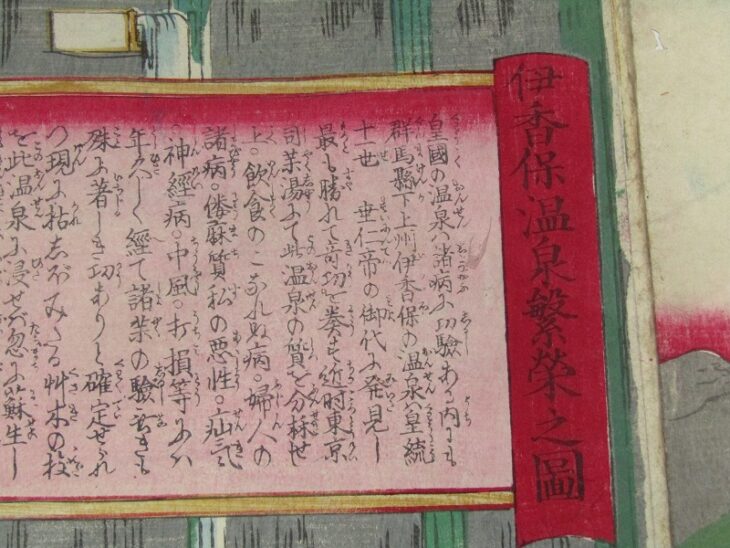 伊香保温泉繁榮之圖
皇國の温泉ハ諸病に功驗ある内にも
群馬縣下上州伊香保の温泉ハ皇統
十一世 垂仁帝の御代に発見し
最も勝れて奇功を奏す近時東京
司薬湯にて此温泉の質を分析せ
上。飲食のこなれぬ病。婦人の
諸病。倦麻質私の悪性。疝氣
神經病。中風。打損等にハ
年久しく經て諸薬の驗なきも
殊に著しき功ありと確定せられ
つ現に枯しぼみたる艸木の枝
を此温泉に浸せバ忽に蘇生し